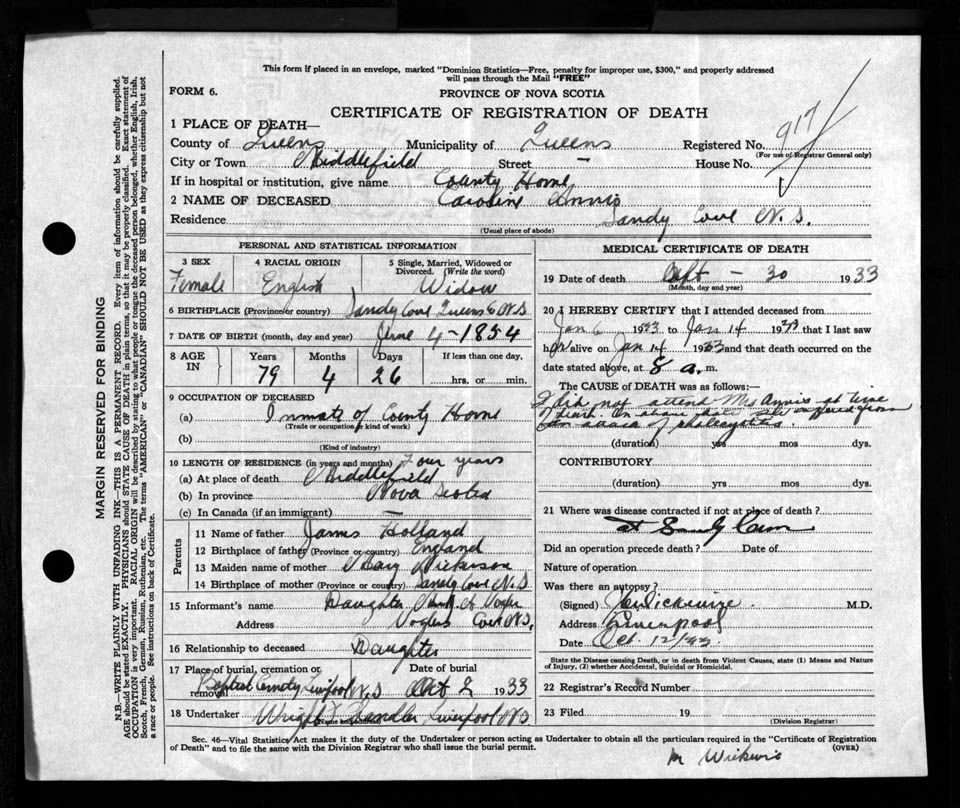 This form if placed in an envelope, marked "Dominion Statistics—Free, penalty for improper use, $300," and properly addressed
will pass through the Mail "FREE"
FORM 6.
PROVINCE OF NOVA SCOTIA
CERTIFICATE OF REGISTRATION OF DEATH
917
1 PLACE OF DEATH—
County of Queens Municipality of Queens Registered No.
(For use of Registrar General only)
City or Town Middlefield Street — House No.
If in hospital or institution, give name County Home
2 NAME OF DECEASED Caroline Annis
Residence Sandy Cove N.S.
(Usual place of abode)
PERSONAL AND STATISTICAL INFORMATION
3 SEX 4 RACIAL ORIGIN 5 Single, Married, Widowed or Divorced. (Write the word)
Female English Widow
6 BIRTHPLACE (Province or country) Sandy Cove Queens Co N.S
7 DATE OF BIRTH (month, day and year) June 4 - 1854
8 AGE IN Years Months Days If less than one day,
79 4 26 hrs. or min.
9 OCCUPATION OF DECEASED
(a) Inmate of County Home
(Trade or occupation or kind of work)
(b)
(Kind of industry)
10 LENGTH OF RESIDENCE (in years and months) Four years
(a) At place of death Middlefield
(b) In province Nova Scotia
(c) In Canada (if an immigrant) —
Parents
11 Name of father James Holland
12 Birthplace of father (Province or country) England
13 Maiden name of mother Mary
14 Birthplace of mother (Province or country) Sandy Cove N.S
15 Informant's name Daughter Vogler
Address Voglers Cove N.S,
16 Relationship to deceased Daughter
17 Place of burial, cremation or removal Date of burial
Baptist Cemetry Liverpool N.S Oct 2 1933
18 Undertaker Wright Liverpool N.S
MEDICAL CERTIFICATE OF DEATH
19 Date of death Sept - 30 1933
(Month, day and year)
20 I HEREBY CERTIFY that I attended deceased from
Jan 6 1933 to Jan 14 19 that I last saw
her alive on Jan 14 1933 and that death occurred on the
date stated above, at 8 a. m.
The CAUSE OF DEATH was as follows:
I did not attend Mrs Annis at time
of death. she suffered from
an attack of
(duration) yrs mos dys.
CONTRIBUTORY
(duration) yrs. mos. dys.
21 Where was disease contracted if not at place of death?
at Sandy Cove
Did an operation precede death? Date of
Nature of operation
Was there an autopsy?
(Signed) Wickwire. M.D.
Address Liverpool
Date Oct. 12/33
State the Disease causing Death, or in death from Violent Causes, state (1) Means and Nature of Injury, (2) whether Accidental, Suicidal or Homicidal.
22 Registrar's Record Number
23 Filed 19
(Division Registrar)
Sec. 46—Vital Statistics Act makes it the duty of the Undertaker or person acting as Undertaker to obtain all the particulars required in the "Certificate of Registration
of Death" and to file the same with the Division Registrar who shall issue the burial permit. (OVER)
M Wickwire
MARGIN RESERVED FOR BINDING
N.B.—WRITE PLAINLY WITH UNFADING INK—THIS IS A PERMANENT RECORD. Every item of information should be carefully supplied.
AGE should be stated EXACTLY. PHYSICIANS should STATE CAUSE OF DEATH in plain terms, so that it may be properly classified. Exact statement of
OCCUPATION is very important. RACIAL ORIGIN will be described by stating to what people or tongue the deceased person belonged, whether English, Irish,
Scotch, French, German, Russian, Ruthenian, etc. The terms "AMERICAN" or "CANADIAN" SHOULD NOT BE USED as they express citizenship but not
a race or people. See instructions on back of Certificate.